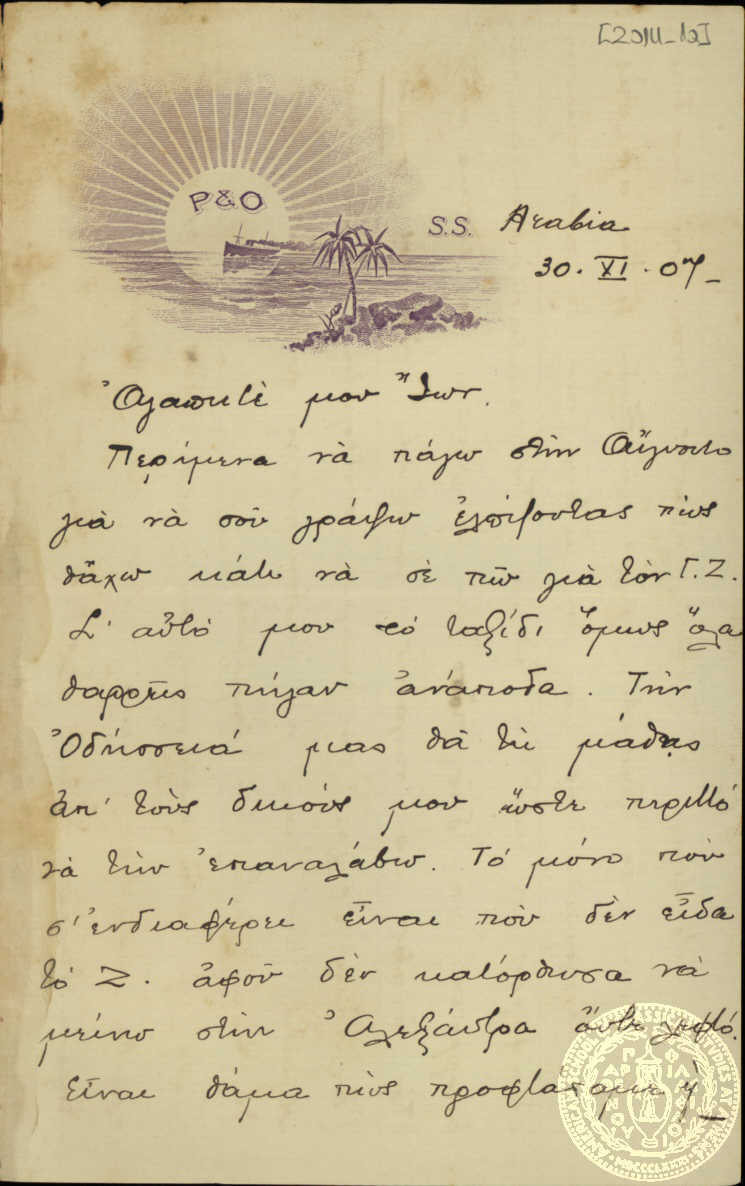 [2014_10]
P&O
S.S. Arabia
30. XI. 07_
Ἀγαπητέ μου Ἴων.
Περίμενα νὰ πάγω στὴν Αἴγυπτο
γιὰ νὰ σοῦ γράψω ἐλπίζοντας πὼς
θἄχω κάτι νὰ σὲ πῶ γιὰ τὸν Γ. Ζ.
Σ' αὐτό μου τὸ ταξίδι ὅμως ὅλα
θαρρεῖς πήγαν ἀνάποδα. Τὴν
Ὀδύσσειά μας θὰ τὴ μάθης
ἀπ' τοὺς δικούς μου ὥστε περιττό
νὰ τὴν ἐπαναλάβω. Τὸ μόνο ποὺ
σ' ἐνδιαφέρει εἶναι ποὺ δὲν εἶδα
τὸ Ζ. ἀφοῦ δὲν κατόρθωσα νὰ
μείνω στὴν Ἀλεξάντρα οὔτε λεφτό.
Εἶναι θάμα πὼς προφτάσαμε ἡ_